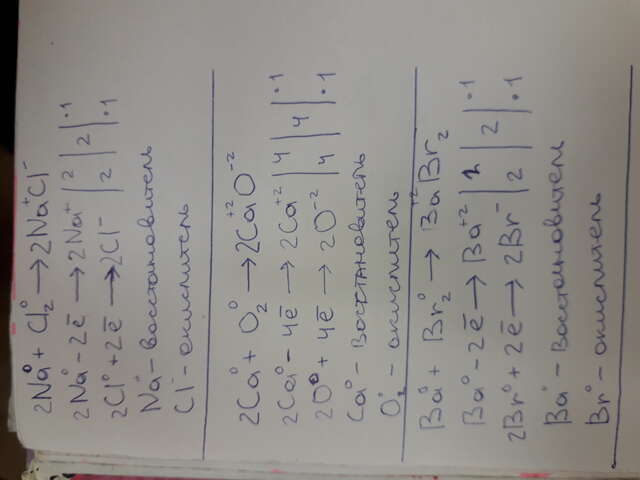 2Na⁰ + Cl₂⁰ → 2Na⁺Cl⁻
2Na⁰ - 2ē → 2Na⁺ | 2 | 2 | ·1
2Cl⁰ + 2ē → 2Cl⁻ | 2 | ·1
Na⁰ - восстановитель
Cl⁰ - окислитель
2Ca⁰ + O₂⁰ → 2Ca⁺²O⁻²
2Ca⁰ - 4ē → 2Ca⁺² | 4 | 4 | ·1
2O⁰ + 4ē → 2O⁻² | 4 | ·1
Ca⁰ - восстановитель
O₂⁰ - окислитель
Ba⁰ + Br₂⁰ → Ba⁺²Br₂
Ba⁰ - 2ē → Ba⁺² | 2 | 2 | ·1
2Br⁰ + 2ē → 2Br⁻ | 2 | ·1
Ba⁰ - восстановитель
Br⁰ - окислитель